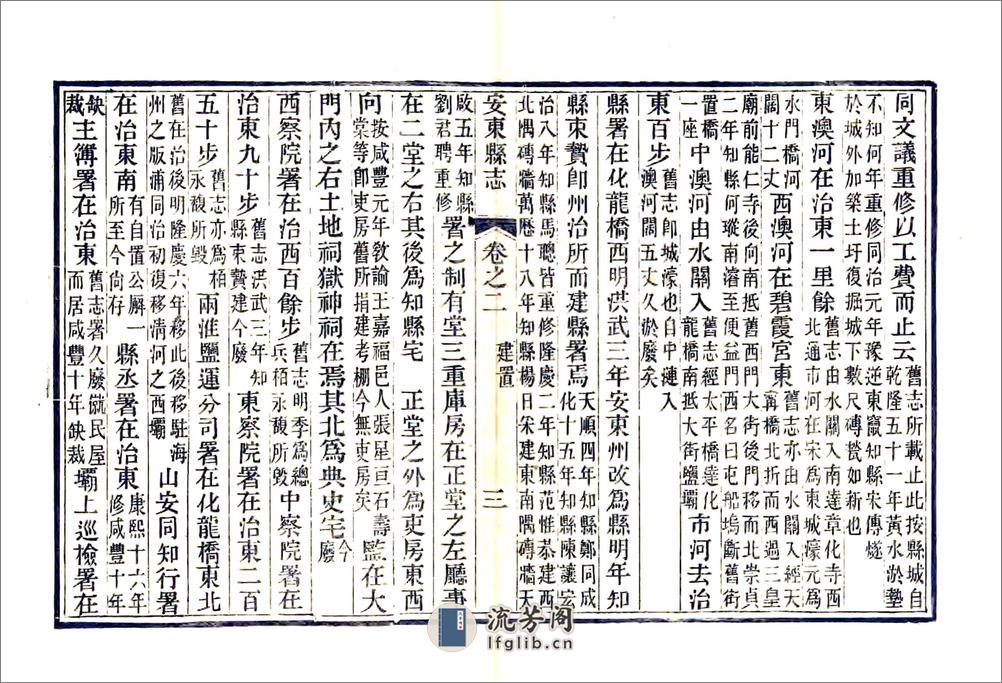 同文議重修以工費而止云舊志所載止此按縣城自乾隆五十一年黃水淤墊
不知何年重修同治元年豫逆東竄知縣宋傳燧
於城外加築土圩復掘城下數尺磚甃如新也
東澳河在治東一里餘舊志由水關入南達章化寺西北通市河在宋為東城濠元為
水門橋河闊十二丈西澳河在碧霞宮東舊志亦由水關入經天寗橋北折而西過三皇
廟前能仁寺後向南抵舊西門大街後門移而北崇貞
二年知縣何瑽南溶至便益門西名曰屯船塢斷舊街
置橋一座中澳河由水關入舊志經太平橋達化龍橋南抵大街鹽壩市河去治
東百步舊志即城濠也自中漣入澳河闊五丈久淤廢矣
縣署在化龍橋西明洪武三年安東州改為縣明年知
縣束贄卽州治所而建縣署焉天順四年知縣鄭同成化十五年知縣陳讓安
治八年知縣馬聰皆重修隆慶二年知縣范惟恭建西
北隅磚牆萬厯十八年知縣楊日宋建東南隅磚牆天
安東縣志 卷之二 建置 三
啟五年知縣劉君聘重修署之制有堂三重庫房在正堂之左廳事
在二堂之右其後為知縣宅 正堂之外為吏房東西
向按咸豐元年敎諭王嘉福邑人張星亘石壽棠等卽吏房舊所捐建考棚今無吏房矣監在大
門內之右土地祠獄神祠在焉其北為典史宅今廢
西察院署在治西百餘步舊志明季為總兵栢永馥所毀中察院署在
治東九十步舊志洪武三年知縣束贄建今廢東察院署在治東二百
五十步舊志亦為栢永馥所毀兩淮鹽運分司署在化龍橋東北
舊在治後明隆慶六年移此後移駐海州之版浦同治初復移淸河之西壩山安同知行署
在治東南有自置公廨一所至今尚存縣丞署在治東康熙十六年修咸豐十年
缺裁主簿署在治東舊志署久廢僦民屋而居咸豐十年缺裁壩上巡檢署在
流芳阁
lfglib.cn